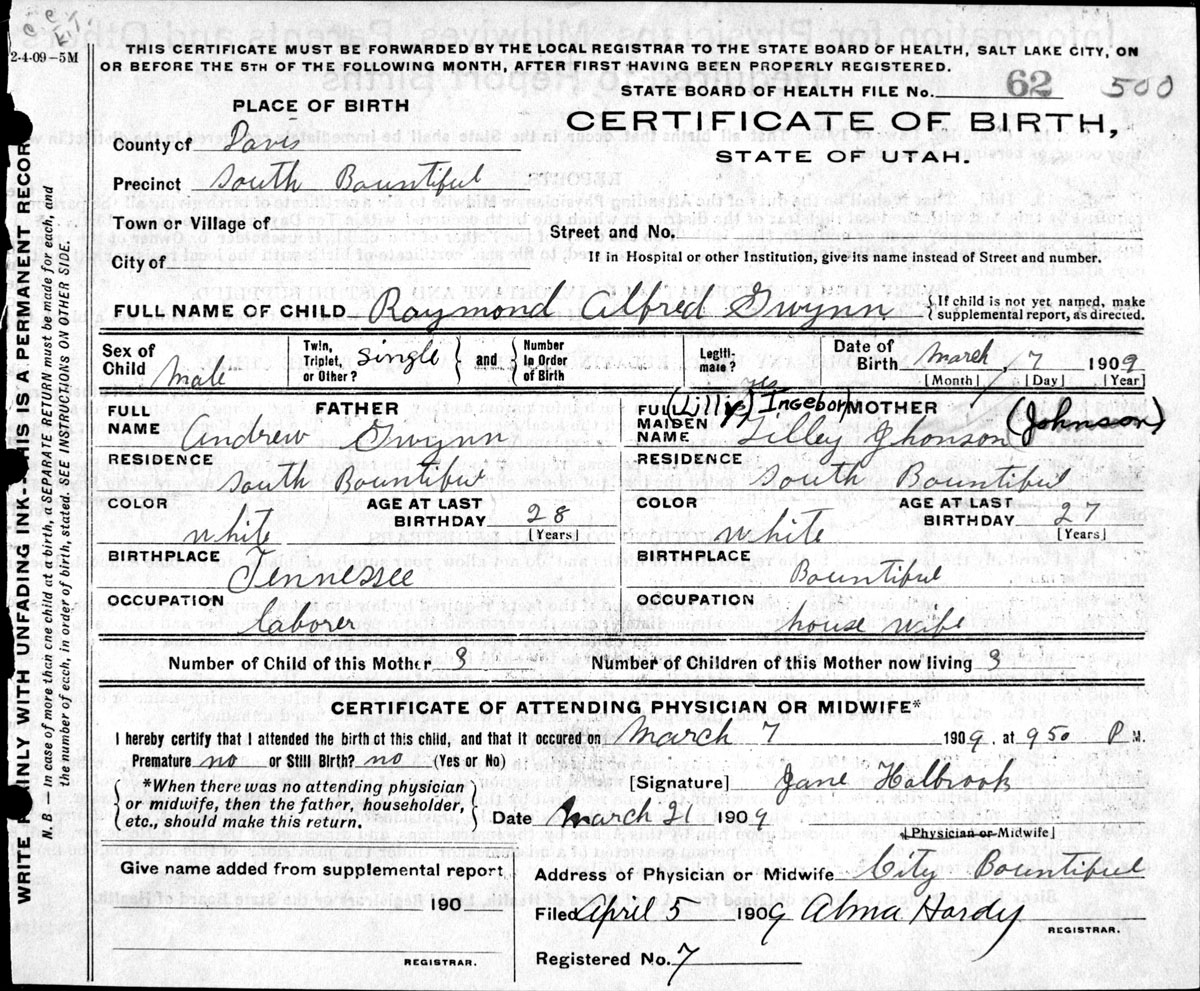 2-4-09-5M
THIS CERTIFICATE MUST BE FORWARDED BY THE LOCAL REGISTRAR TO THE STATE BOARD OF HEALTH, SALT LAKE CITY, ON
OR BEFORE THE 5TH OF THE FOLLOWING MONTH, AFTER FIRST HAVING BEEN PROPERLY REGISTERED.
STATE BOARD OF HEALTH FILE No. 62 500
PLACE OF BIRTH
CERTIFICATE OF BIRTH,
STATE OF UTAH.
County of Davis
Precinct South Bountiful
Town or Village of
Street and No.
City of
If in Hospital or other Institution, give its name instead of Street and number.
FULL NAME OF CHILD Raymond Alfred Gwynn
{If child is not yet named, make
supplemental report, as directed.
Sex of Child Male
Twin, Triplet, or Other? Single } and { Number in Order of Birth
Legiti- mate? yes
Date of Birth March 7 1909
[Month] [Day] [Year]
FATHER
FULL NAME Andrew Gwynn
RESIDENCE
South Bountiful
COLOR white AGE AT LAST BIRTHDAY 28 [Years]
BIRTHPLACE
Tennessee
OCCUPATION
laborer
MOTHER
FULL MAIDEN NAME (Lilly) Ingebor Lilley Jhonson (Johnson)
RESIDENCE
South Bountiful
COLOR white AGE AT LAST BIRTHDAY 27 [Years]
BIRTHPLACE
Bountiful
OCCUPATION
house wife
Number of Child of this Mother 3 Number of Children of this Mother now living 3
CERTIFICATE OF ATTENDING PHYSICIAN OR MIDWIFE*
I hereby certify that I attended the birth of this child, and that it occured on March 7 1909, at 9 50 P M.
Premature no or Still Birth? no (Yes or No)
[Signature] Jane Holbrook
{*When there was no attending physician
or midwife, then the father, householder,
etc., should make this return.}
Date March 21 1909
[Physician or Midwife]
Give name added from supplemental report
190
REGISTRAR.
Address of Physician or Midwife City Bountiful
Filed April 5 1909 Alma Hardy
REGISTRAR.
Registered No. 7
WRITE PLAINLY WITH UNFADING INK--THIS IS A PERMANENT RECOR
N. B. — In case of more than one child at a birth, a SEPARATE RETURN must be made for each, and
the number of each, in order of birth, stated. SEE INSTRUCTIONS ON OTHER SIDE.